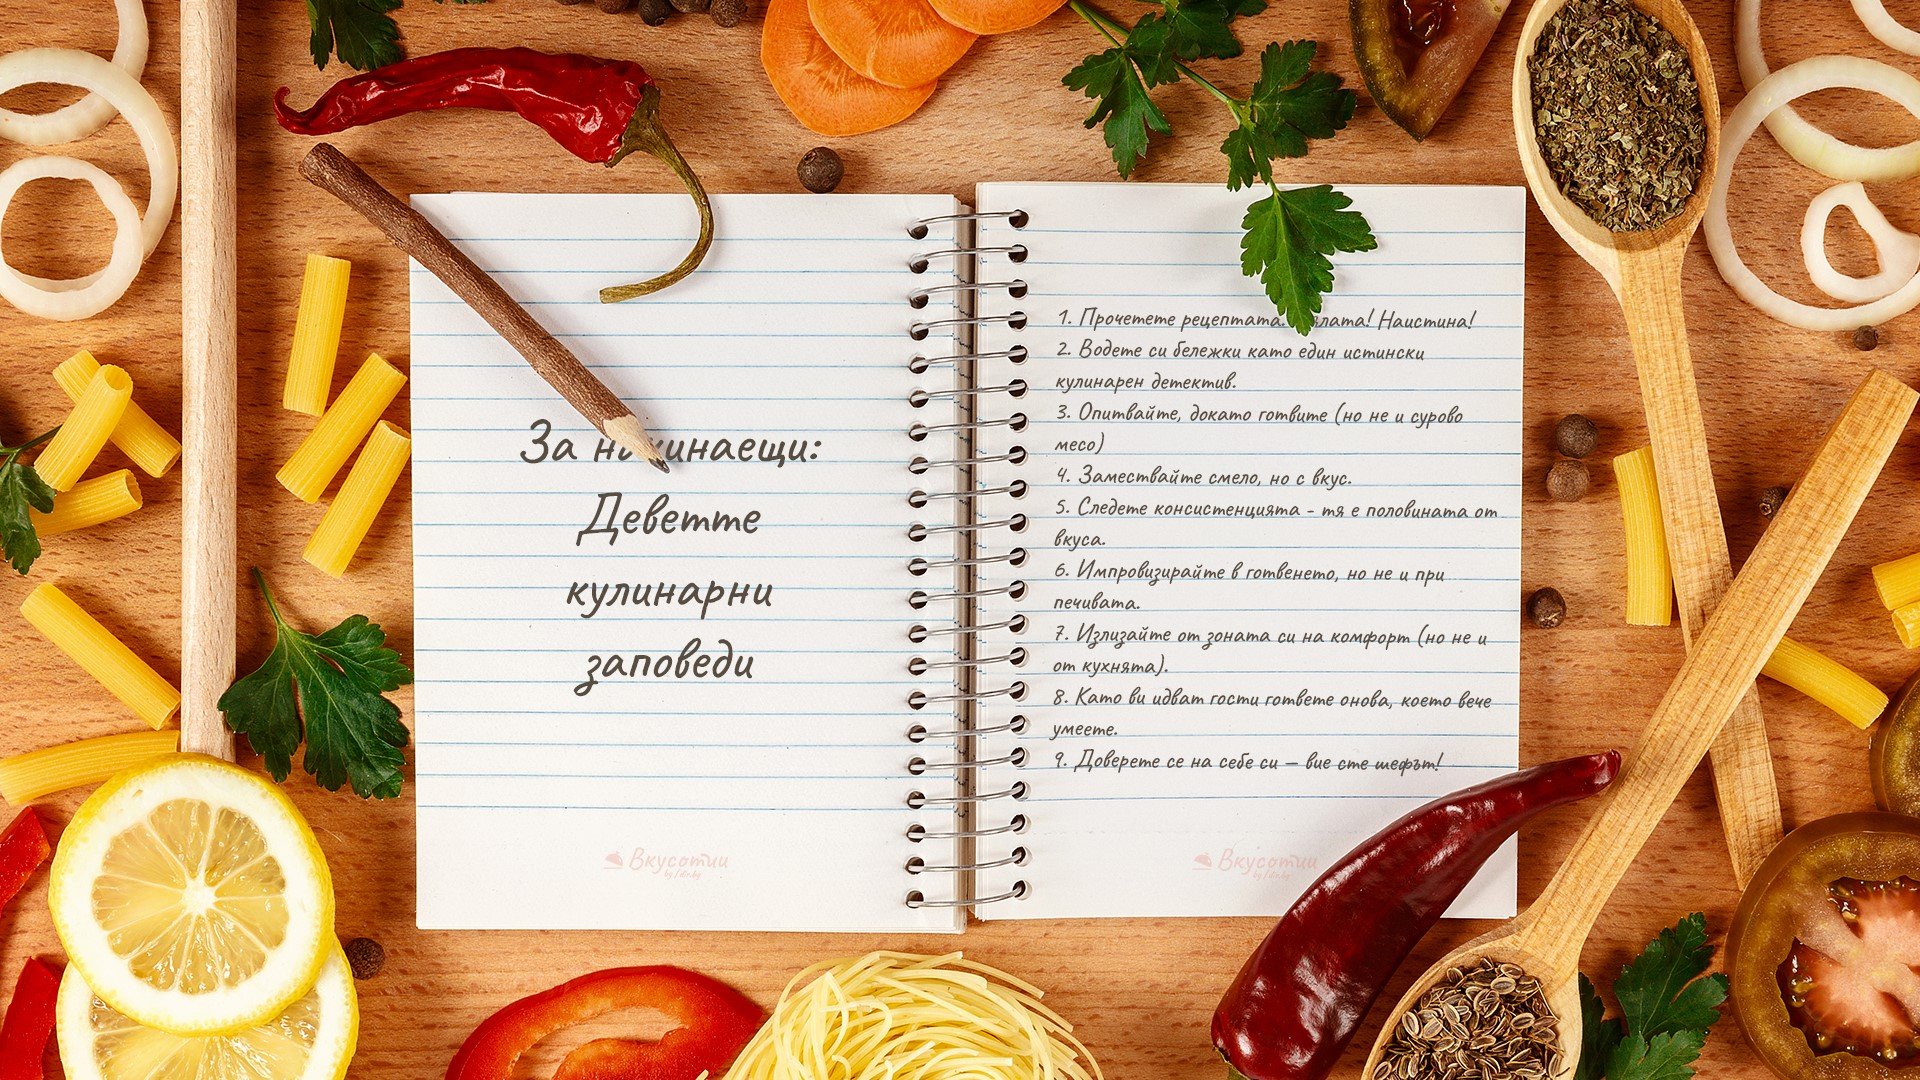 За начинаещи:
Деветте
кулинарни
заповеди
1. Прочетете рецептата. Наистина!
2. Водете си бележки като един истински
кулинарен детектив.
3. Опитвайте, докато готвите (но не и сурово
месо)
4. Замествайте смело, но с вкус.
5. Следете консистенцията - тя е половината от
вкуса.
6. Импровизирайте в готвенето, но не и при
печивата.
7. Излизайте от зоната си на комфорт (но не и
от кухнята).
8. Като ви идват гости гответе онова, което вече
умеете.
9. Доверете се на себе си — вие сте шефът!
Вкусотии
by / dir.bg
Вкусотии
by / dir.bg